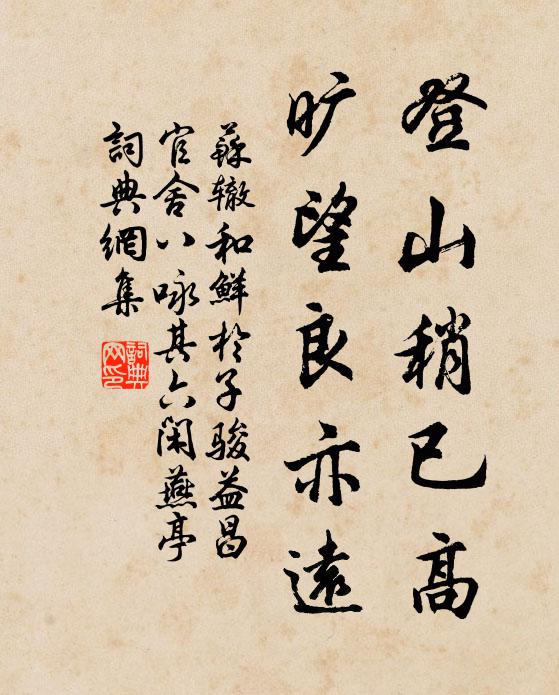 登山稍已高
旷望良亦遠
蘇辙和鮮於子骏益昌
官舍八咏其六闲燕亭
詞典網集
詞典
网印